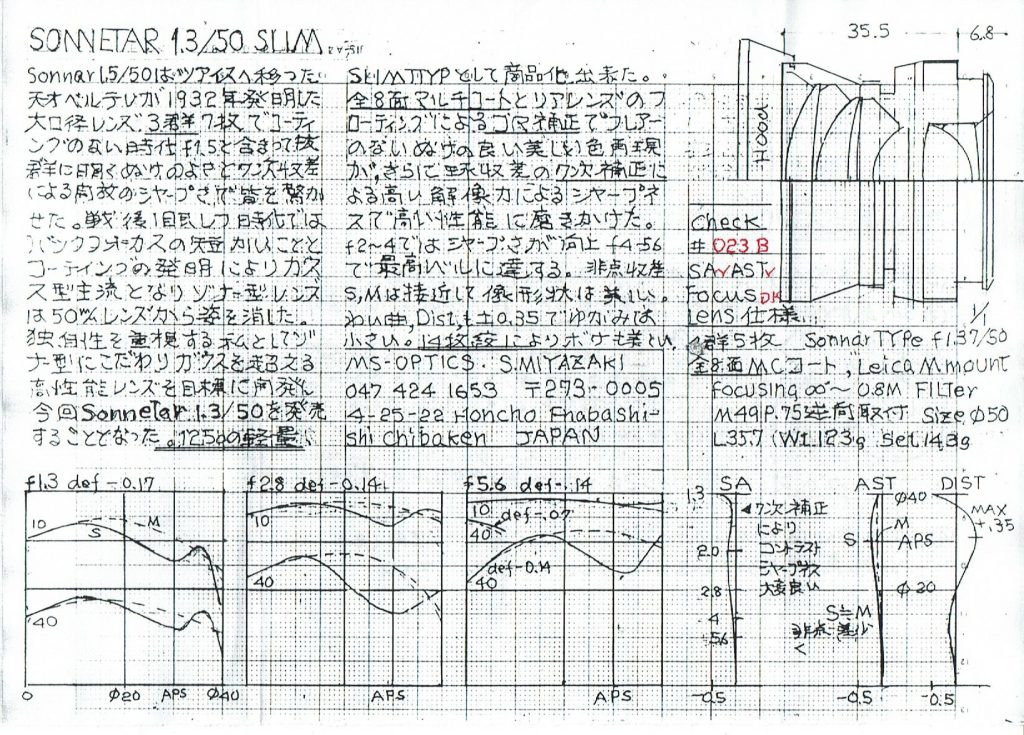 SONNETAR 1.3/50 SLIM
Sonnar 1.5/50はツアイスへ移った
天オベルテレが1932年発明した
大口径レンズ.3群7枚でコーティ
ングのない時代f1.5と含さって
群に明るくぬけのよさと7次収差
による周放のシャープさで皆を驚か
せた。戦後1眼レフ時代では
バックフォーカスの短かいことと
コーティングの発明によりガウ
ス型主流となりゾナー型レンズ
は50%レンズから姿を消した。
独自性を重視する私としてゾ
ナー型にこだわりガウスを超える
高性能レンズを目標に開発し
今回Sonnetar 1.3/50を発売
することとなった。125gの軽量、
SLIMTYPとして商品化出来た。
全8面マルチコートとリアレンズのフ
ローティングによるコマ補正でフレアー
のないぬけの良い美しい色再現
が、さらに球収差の7次補正に
よる高い解像力によるシャープネ
スで高い性能に磨きかけた。
f2~4ではシャープさが向上f4-56
で最高レベルに達する。非点収差
S,Mは接近して像形状は美しい。
わい曲,Dist,も±0.35でゆがみは
小さい。14枚絞によりボケも美しい,
MS-OPTICS. S.MIYAZAKI
047 424 1653 〒273-0005
4-25-22 Honcho Fnabashi-
shi Chibaken JAPAN
35.5
6.8
HOOD
1/1
Check
# 023 B
SA✓AST✓
Focus OK
Lens仕様
群5枚 Sonnar TYPe f1.37/50
全8面MCコート, Leica M mount
Focusing ∞~0.8M FILTer
M49P.75逆向取付 Size Ø50
L35.7 (Wt.123g Set 143g
f1.3 def-0.17
10
M
S
40
0 Ø20 APS Ø40
f2.8 def-0.14
10
40
APS
f5.6 def-.14
10
def-.07
40
def-0.14
40
APS
SA
1.3
2.0
2.8
4
56
-0.5
7次補正
により
コントラスト
シャープネス
大変良い
AST
Ø40
M
S
APS
Ø20
S≒M
非点差少
く
-0.5
DIST
MAX
+.35
-0.5